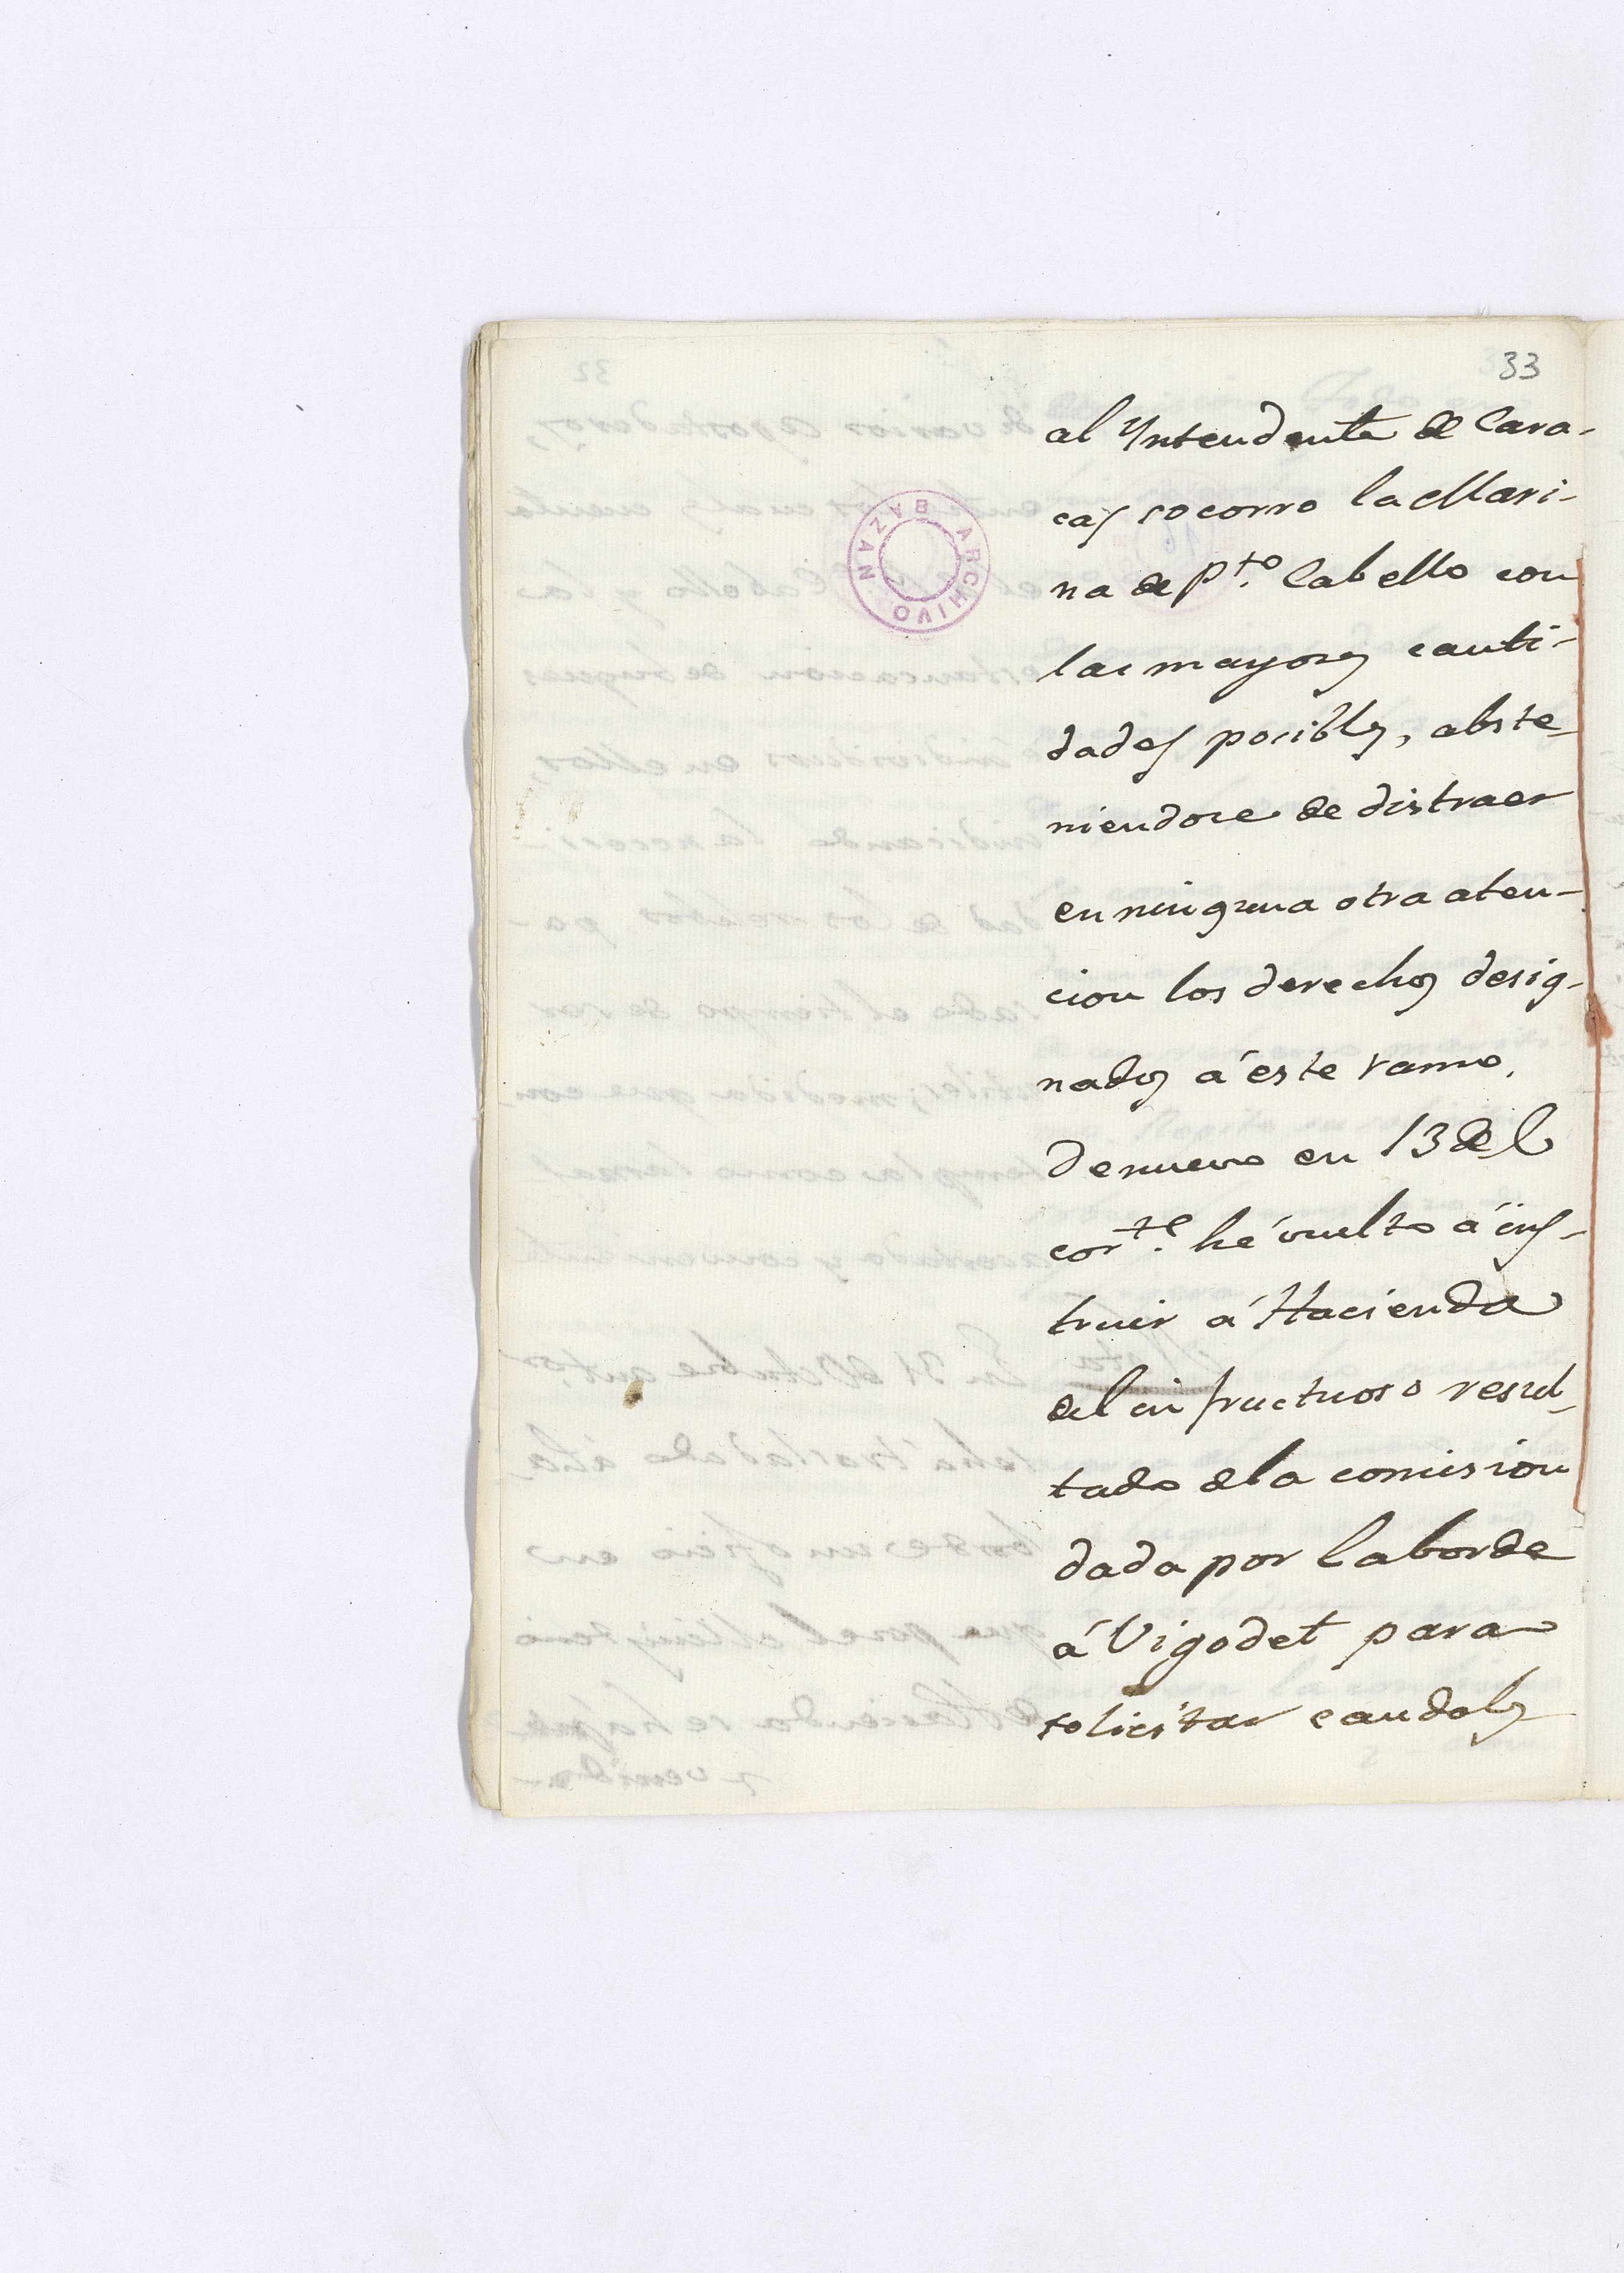 33
al Yntendente de Cara-
cas socorro la Mari-
na de Pto. Cabello con
las mayores canti-
dades posibles, abste-
niendose de distraer
en ninguna otra aten-
cion los derechos desig-
nados á este ramo.
De nuevo en 13 del
corte. hé vuelto á ins-
truir á Hacienda
del infructuoso resul-
tado de la comision
dada por Laborde
á Vigodet para
solicitar caudales
ARCHIVO BAZAN